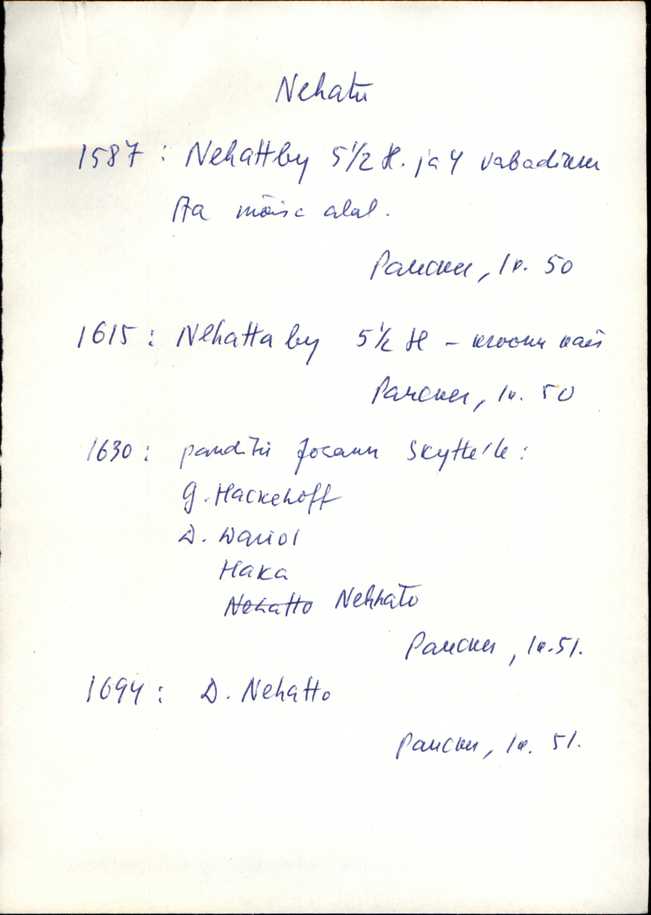 Nehatu
1587: Nehattby 5 1/2 H. ja 4 vabadikku
Aa mõisa alal.
Paucker, lk. 50
1615: Nehatta by 5 1/2 H -
Paucker, lk. 50
1630: panditi Jocann Skytte'le:
G. Hackehoff
D. Wariol
Haka
Nehatto Nehhato
Paucker, lk. 51.
1694: D. Nehatto
Paucker, lk. 51.